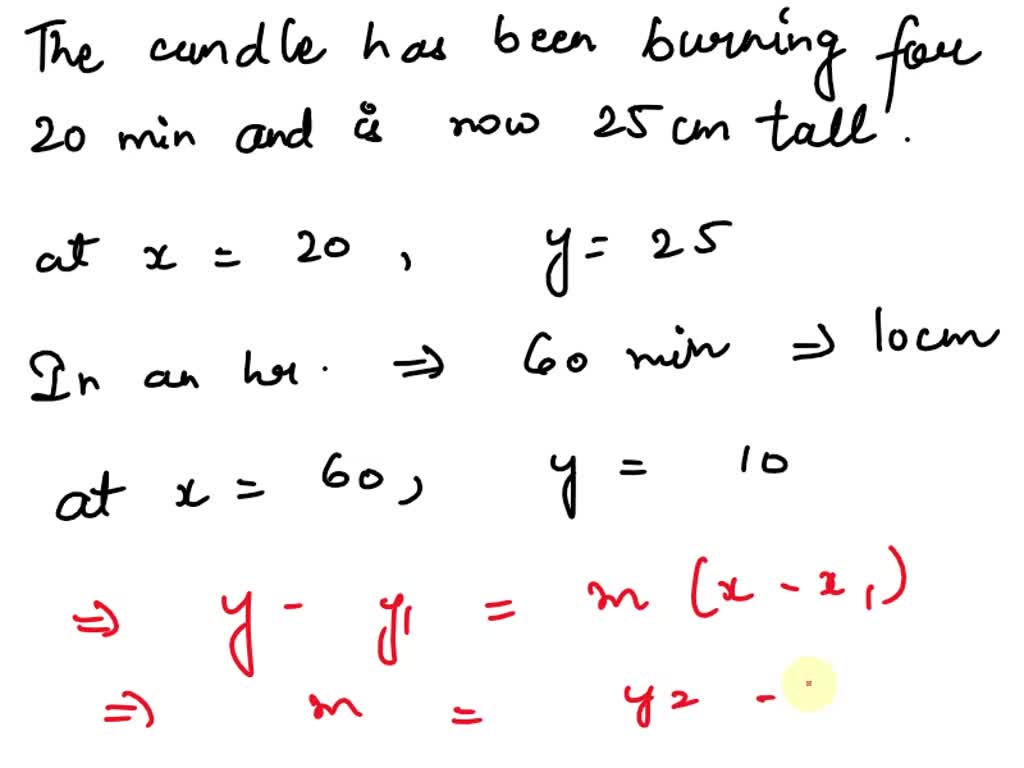 The candle has been burning for
20 min and is now 25 cm tall.
at x = 20, y = 25
In an hr. ⇒ 60 min ⇒ 10cm
at x = 60, y = 10
⇒ y - y₁ = m (x - x₁)
⇒ m = y₂ -